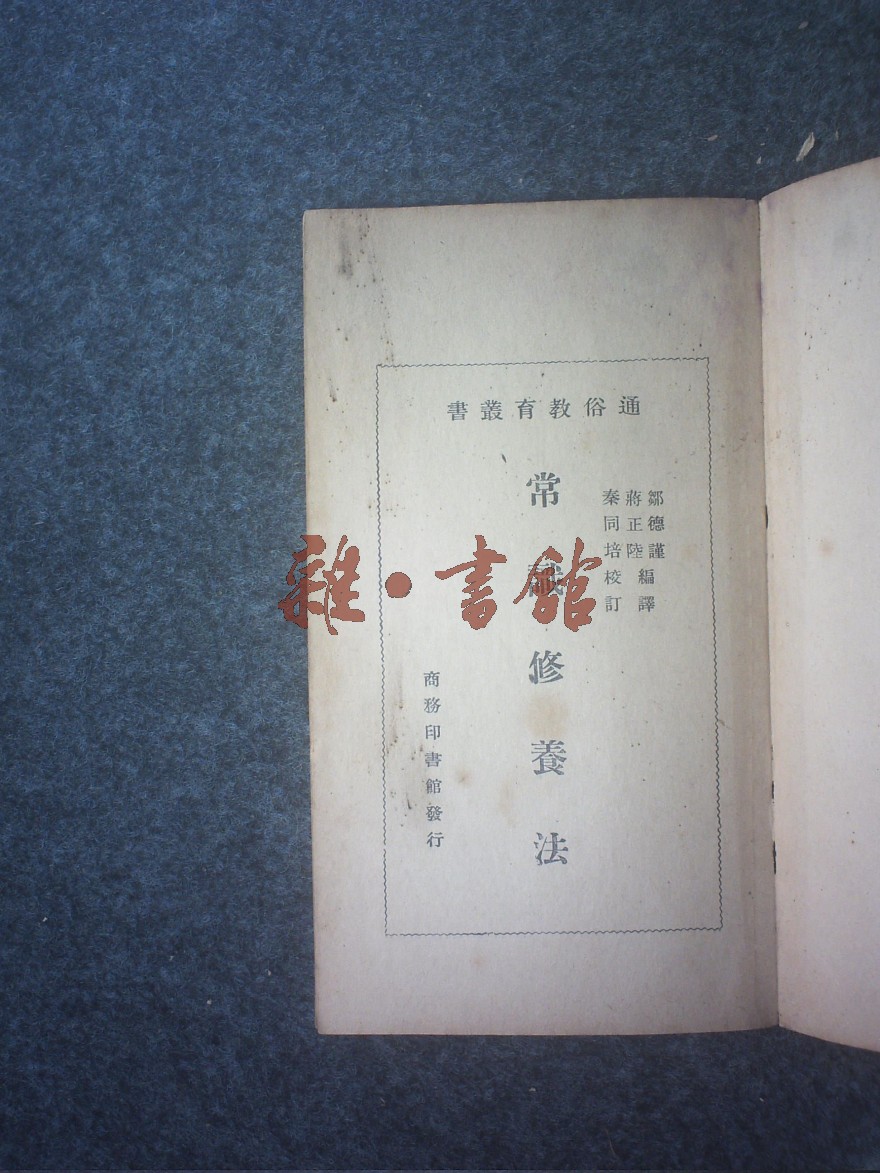 通俗教育叢書
鄒德謹
蔣正陸編譯
秦同培校訂
常識修養法
商務印書館發行
雜·書館